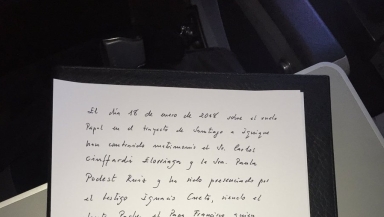 El día 18 de enero de 2018 sobre el vuelo
Papal en el trayecto de Santiago a Iquique
han contraído matrimonio el Sr. Carlos
Ciuffardi Elorriaga y la Sra. Paula
Podest Ruiz y ha sido presenciado por
el testigo Ignacio Cueto, siendo el
Santo Padre el Papa Francisco quien